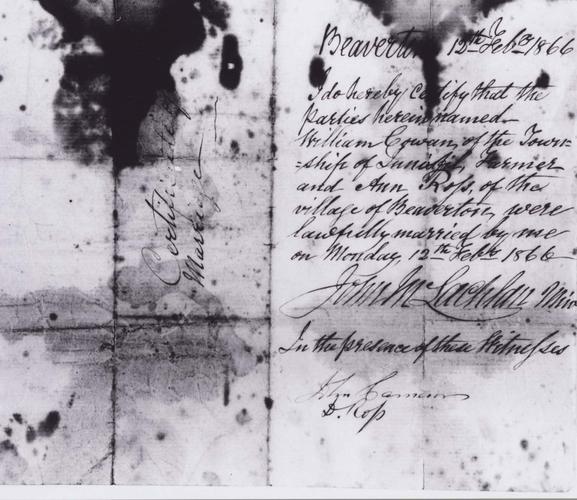 Certificate of
Marriage
Beaverton 12th Feby 1866
I do hereby certify that the
Parties herein named
William Cowan, of the Town=
=ship of Farmer
and Ann Ross, of the
village of Beaverton, were
lawfully married by me
on Monday, 12th Feby 1866
John McLachlan Min
In the presence of these Witnesses
John Cameron
D. Ross